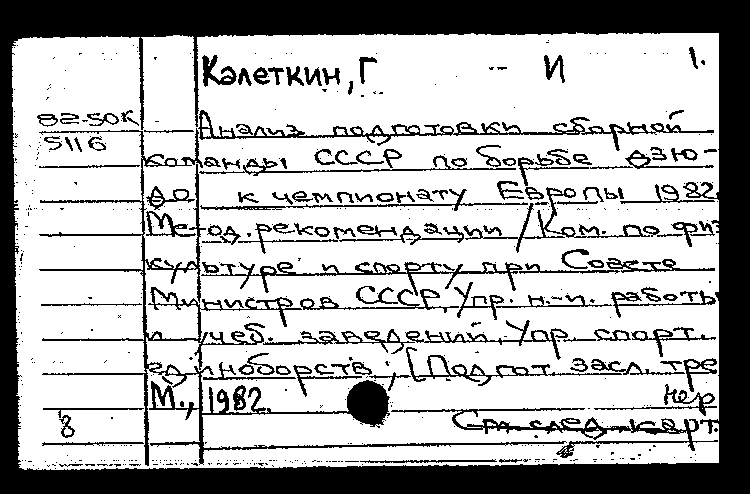 Калеткин, Г И 1.
82-50К
5116
Анализ подготовки сборной
команды СССР по борьбе дзю-
до к чемпионату Европы 1982.
Метод. рекомендации / Ком. по физ
культуре и спорту при Совете
Министров СССР, Упр. н.-и. работы
и учеб. заведений, Упр спорт.
единоборств ; [Подгот. засл. тре
М., 1982. нер
8 См след. карт.